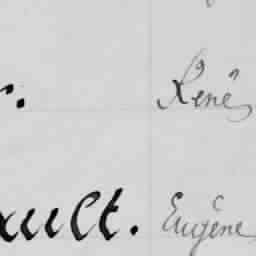 r. René
ault. Eugène